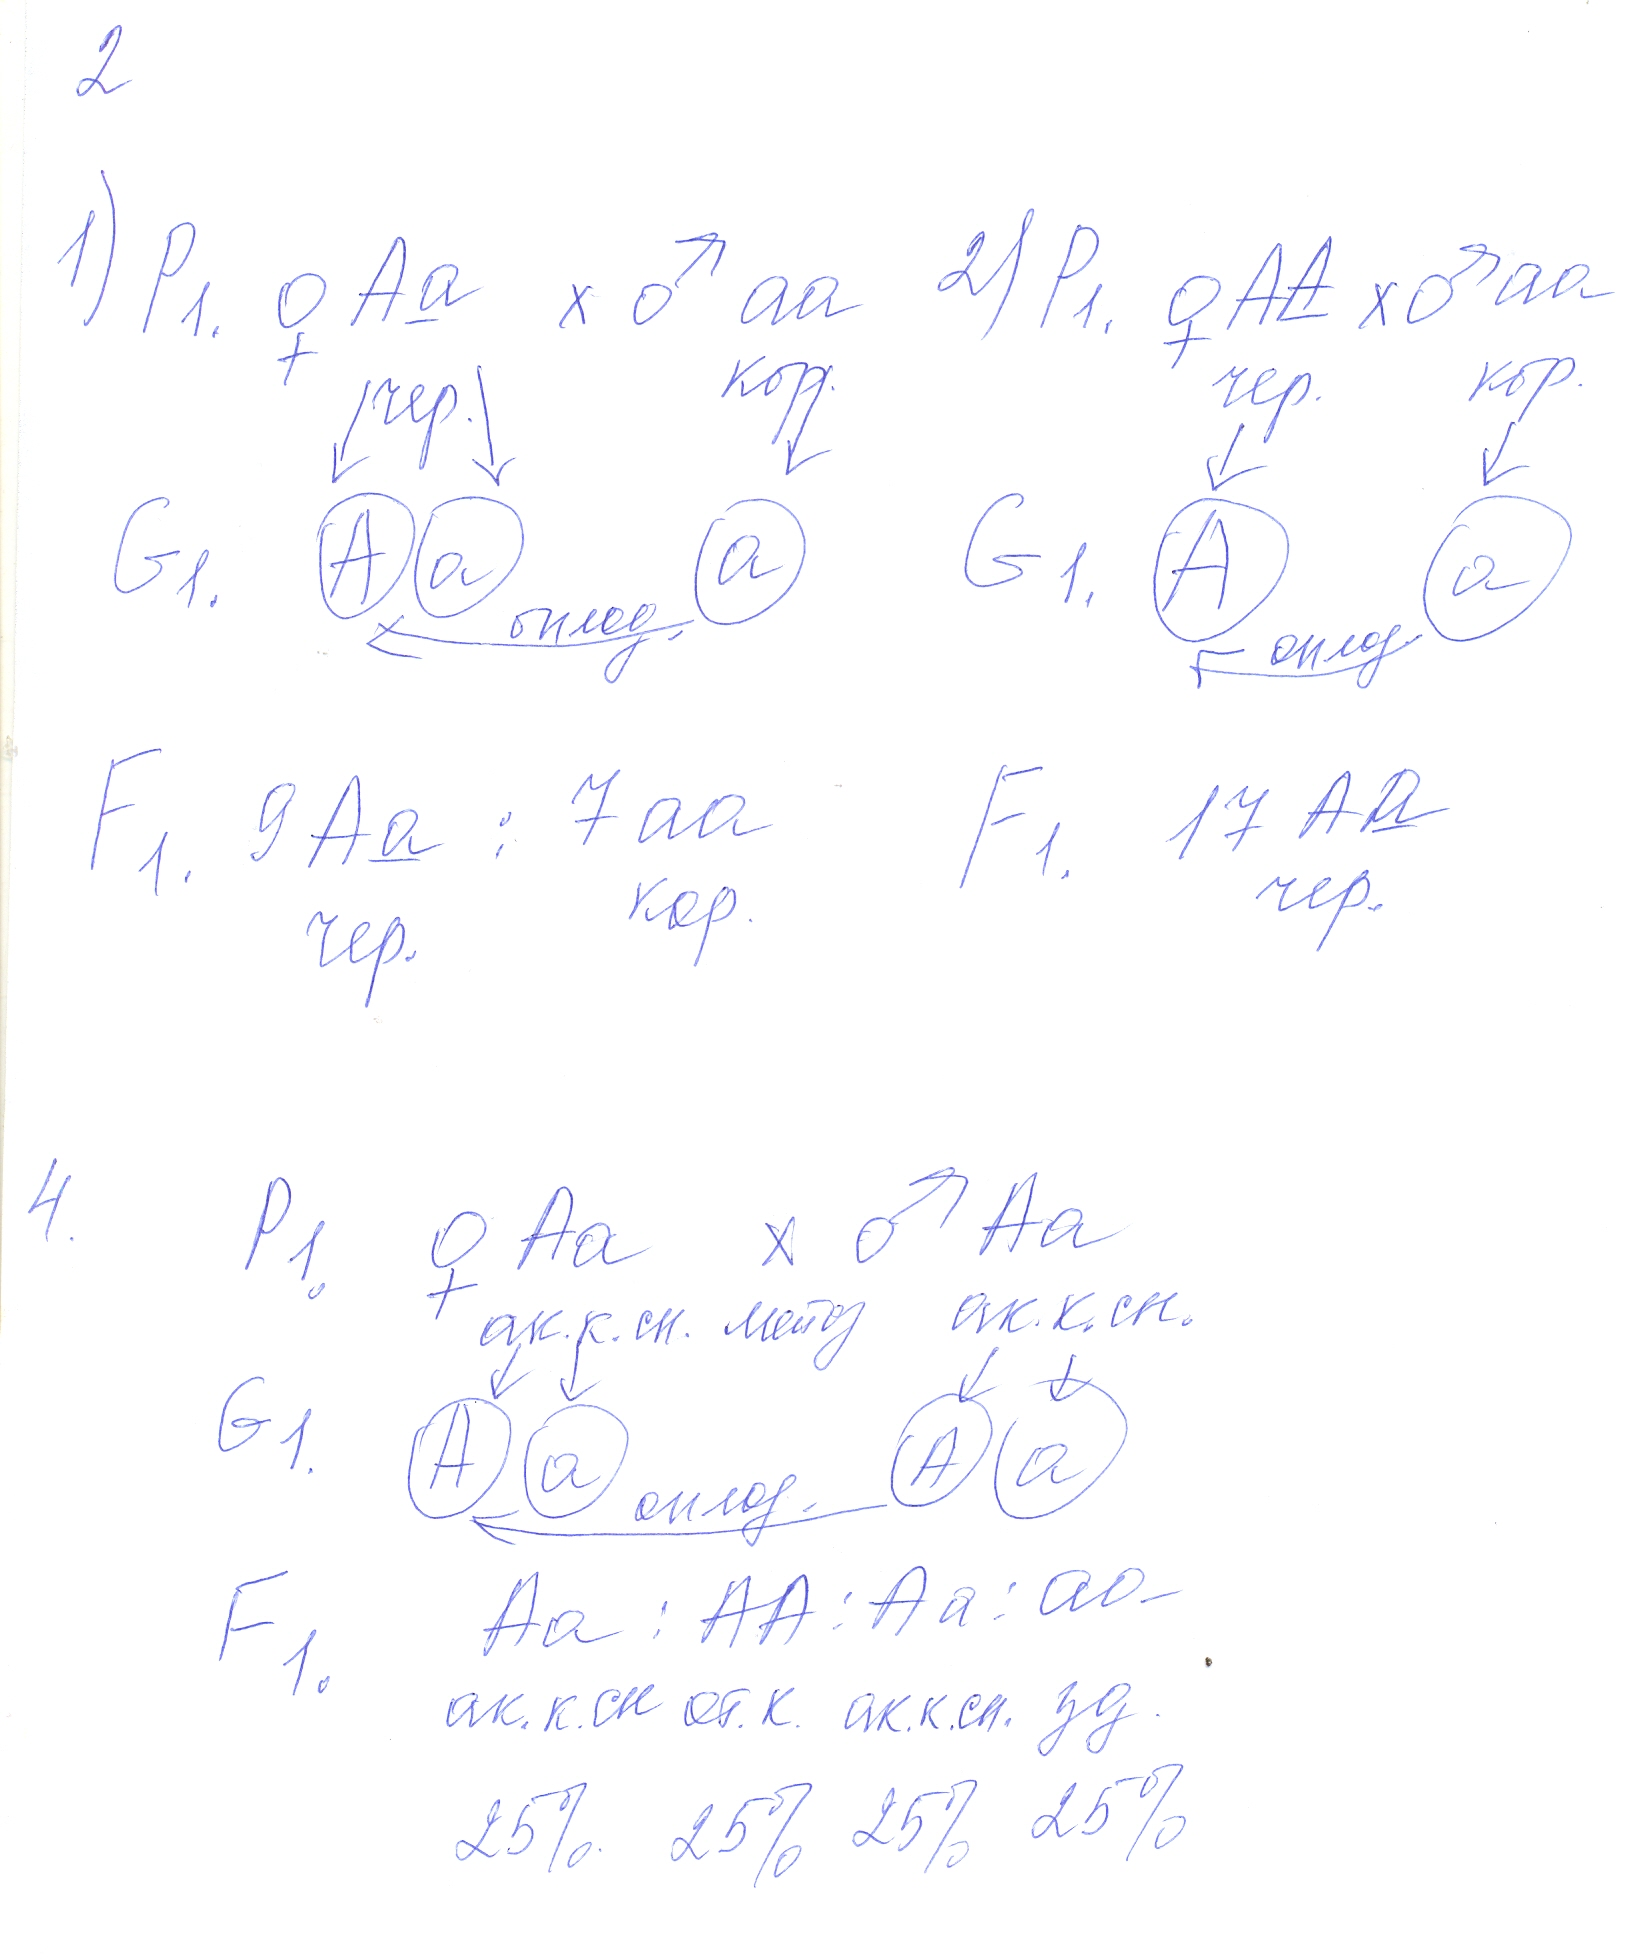 2
1) P1. ♀ Aa x ♂ aa
чер. кор.
G1. A a a
оплод.
F1. 9 Aa : 7 aa
чер. кор.
2) P1. ♀ AA x ♂ aa
чер. кор.
G1. A a
оплод.
F1. 17 Aa
чер.
4. P1. ♀ Aa x ♂ Aa
ак.к.сн. мейоз ак.к.сн.
G1. A a A a
оплод.
F1. Aa : AA : Aa : aa
ак.к.сн от.к. ак.к.сн. зд.
25% 25% 25% 25%